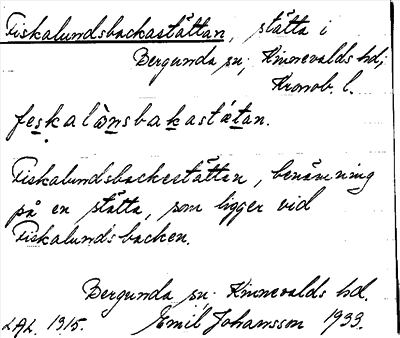 Fiskalundsbackastättan, stätta i
Bergunda sn; Kinnevalds hd;
Kronob. l.
feskalànsbakastátan.
Fiskalundsbackestättan, benämning
på en stätta, som ligger vid
Fiskalundsbacken.
Bergunda sn. Kinnevalds hd.
LAL. 1315. Emil Johansson 1933.